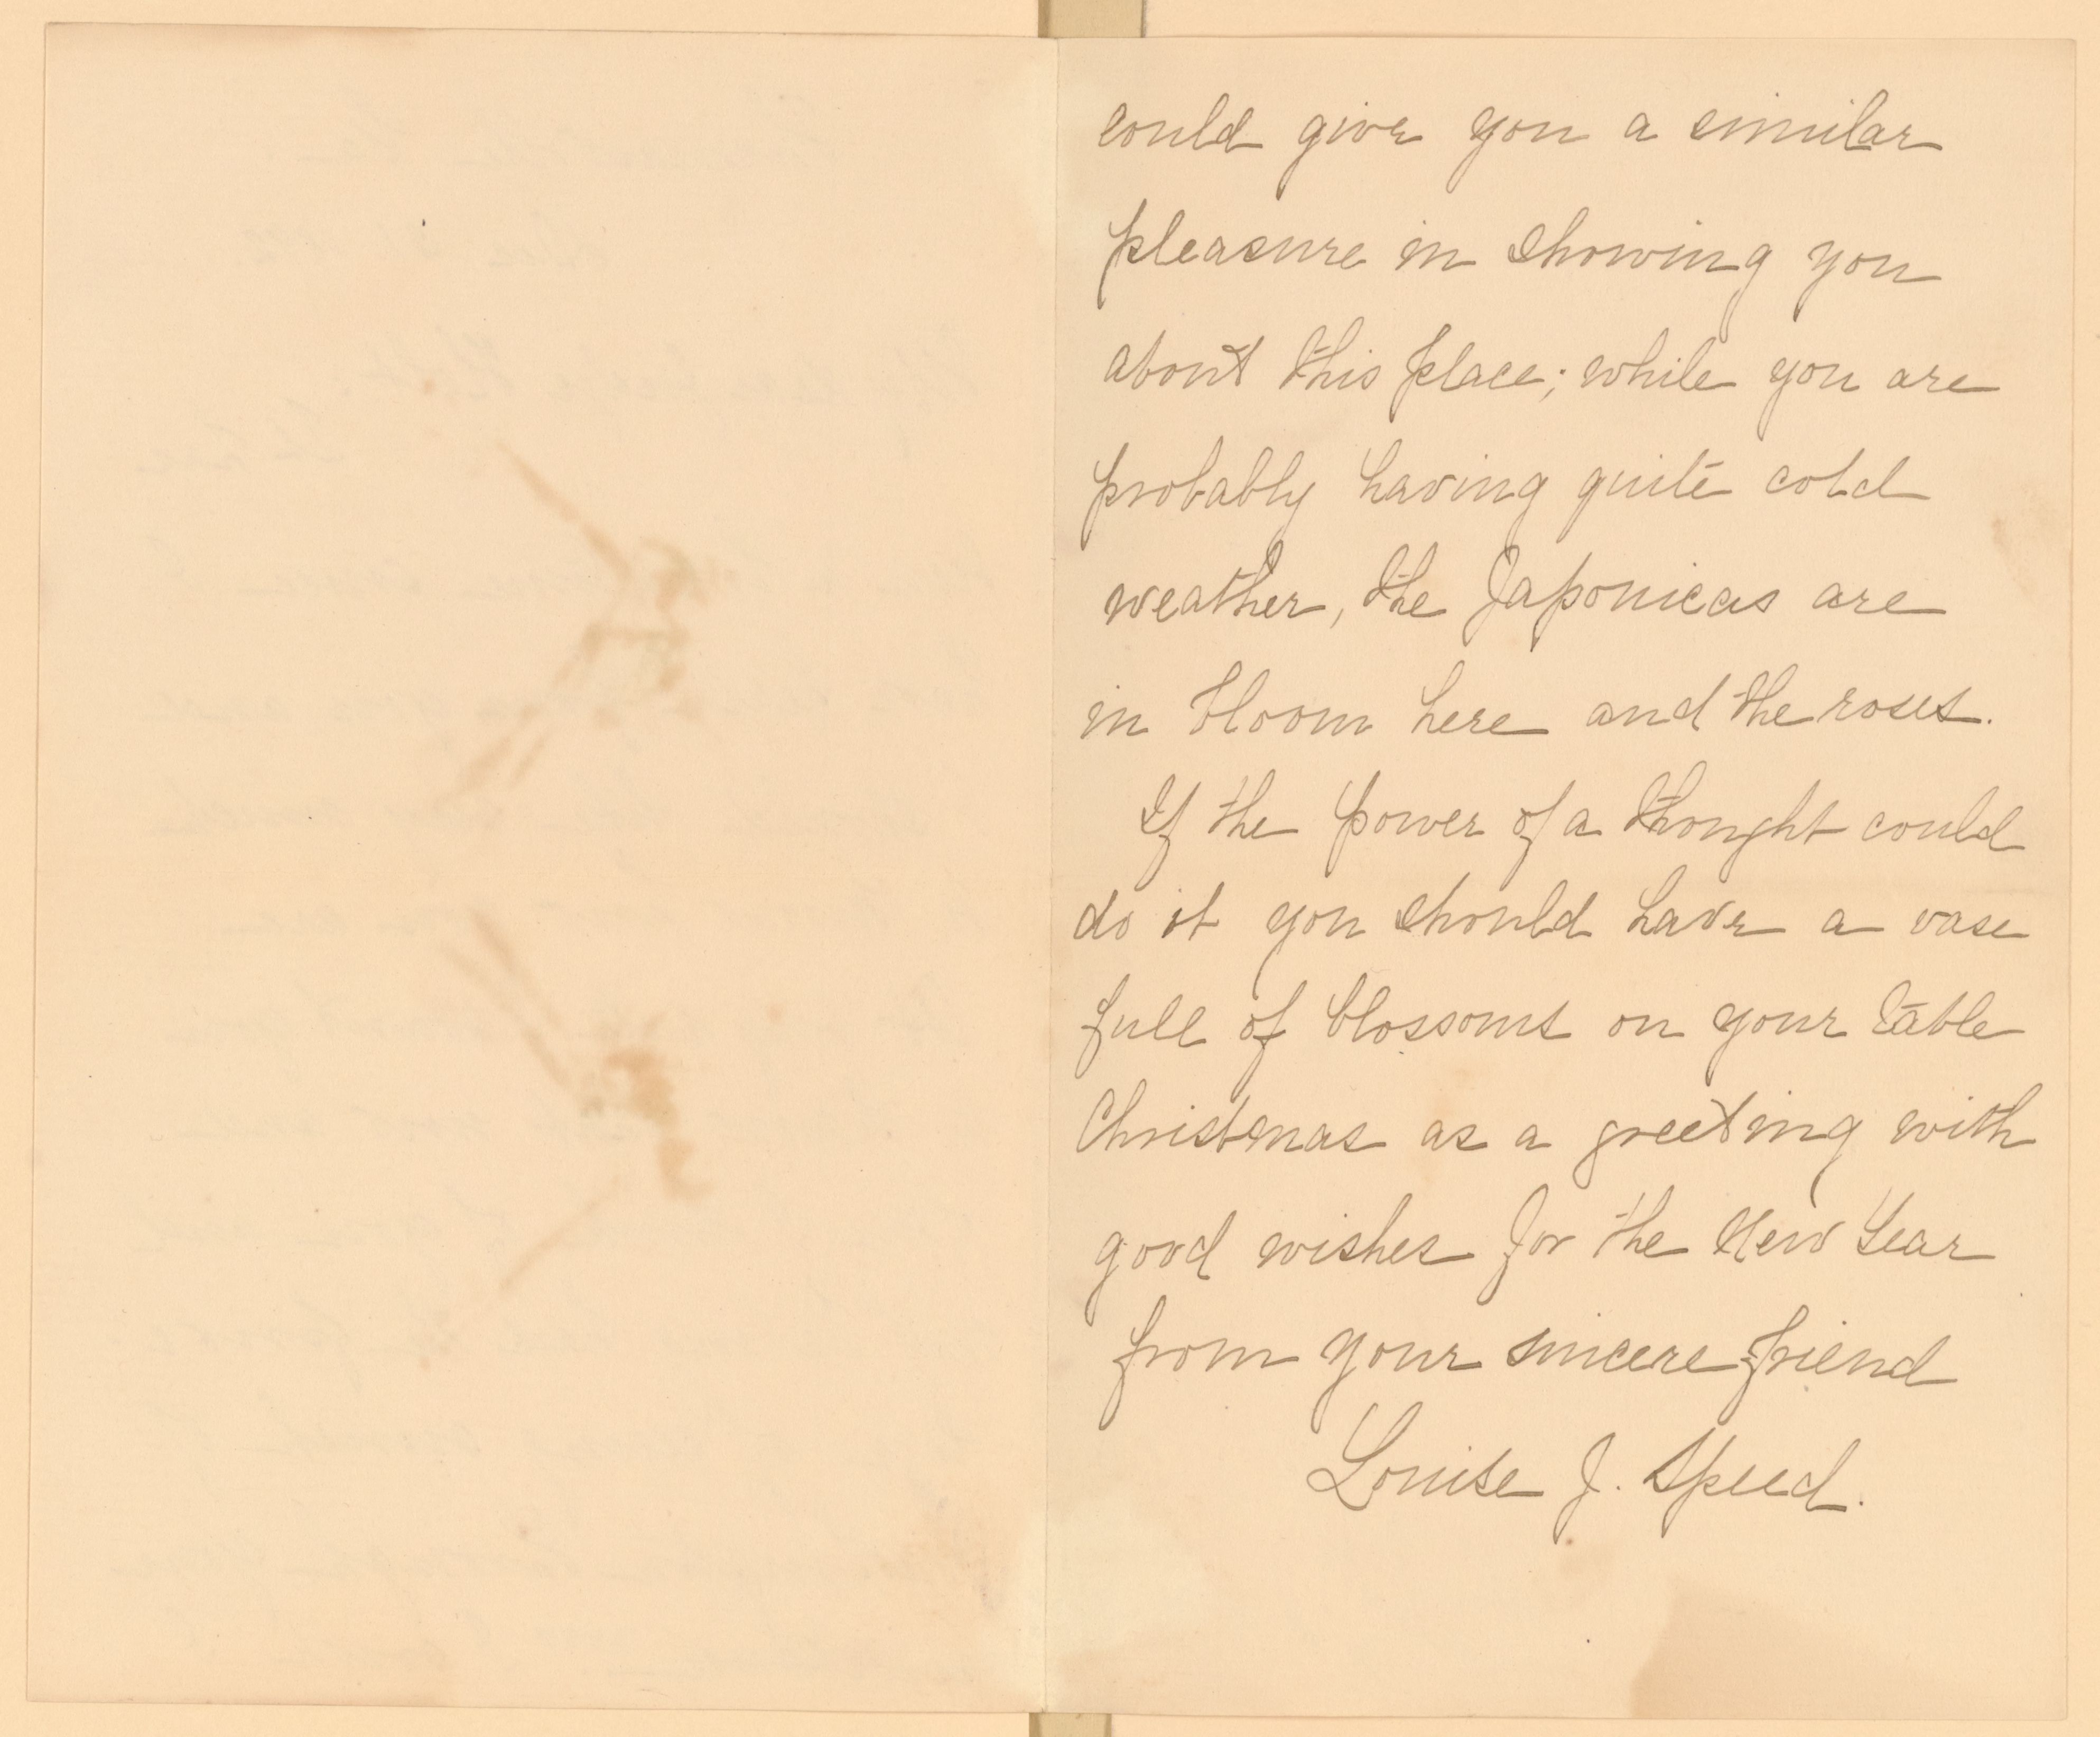 could give you a similar
pleasure in showing you
about this place; while you are
probably having quite cold
weather, the Japonicas are
in bloom here and the roses.
If the power of a thought could
do it you should have a vase
full of blossoms on your table
Christmas as a greeting with
good wishes for the New Year
from your sincere friend
Louise J. Speed.